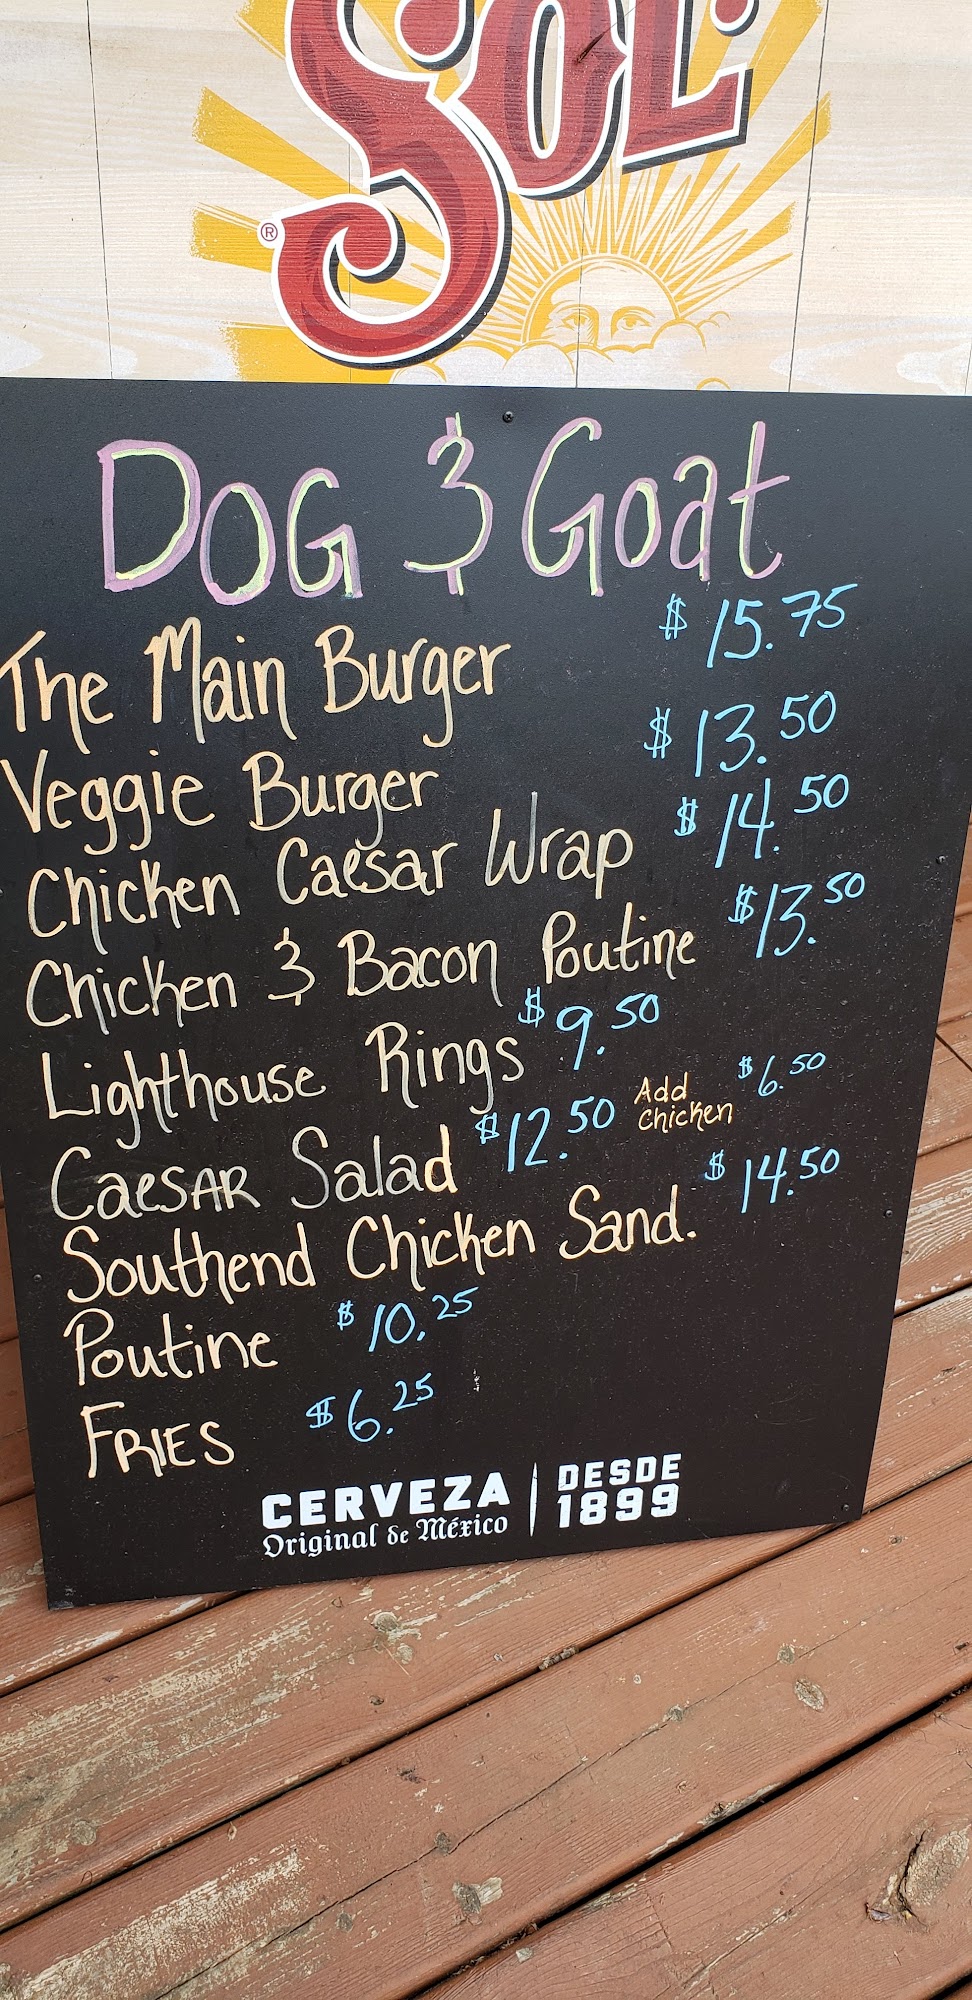 SOL.
®
DOG & Goat
The Main Burger $15.75
Veggie Burger $13.50
Chicken Caesar Wrap $14.50
Chicken & Bacon Poutine $13.50
Lighthouse Rings $9.50
CaesAR Salad $12.50 Add Chicken $6.50
Southend Chicken Sand. $14.50
Poutine $10.25
FRIES $6.25
CERVEZA | DESDE
Original de México 1899